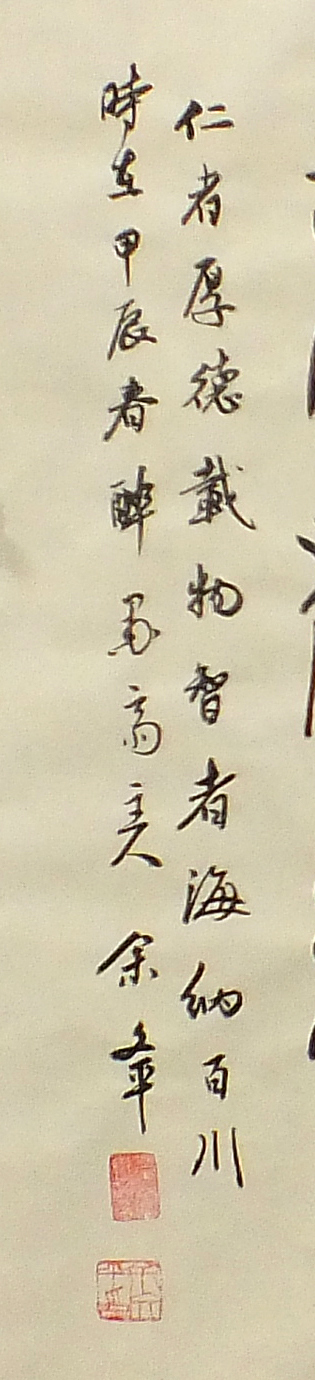 仁者厚德載物智者海納百川
時在甲辰春醉墨斋主人余